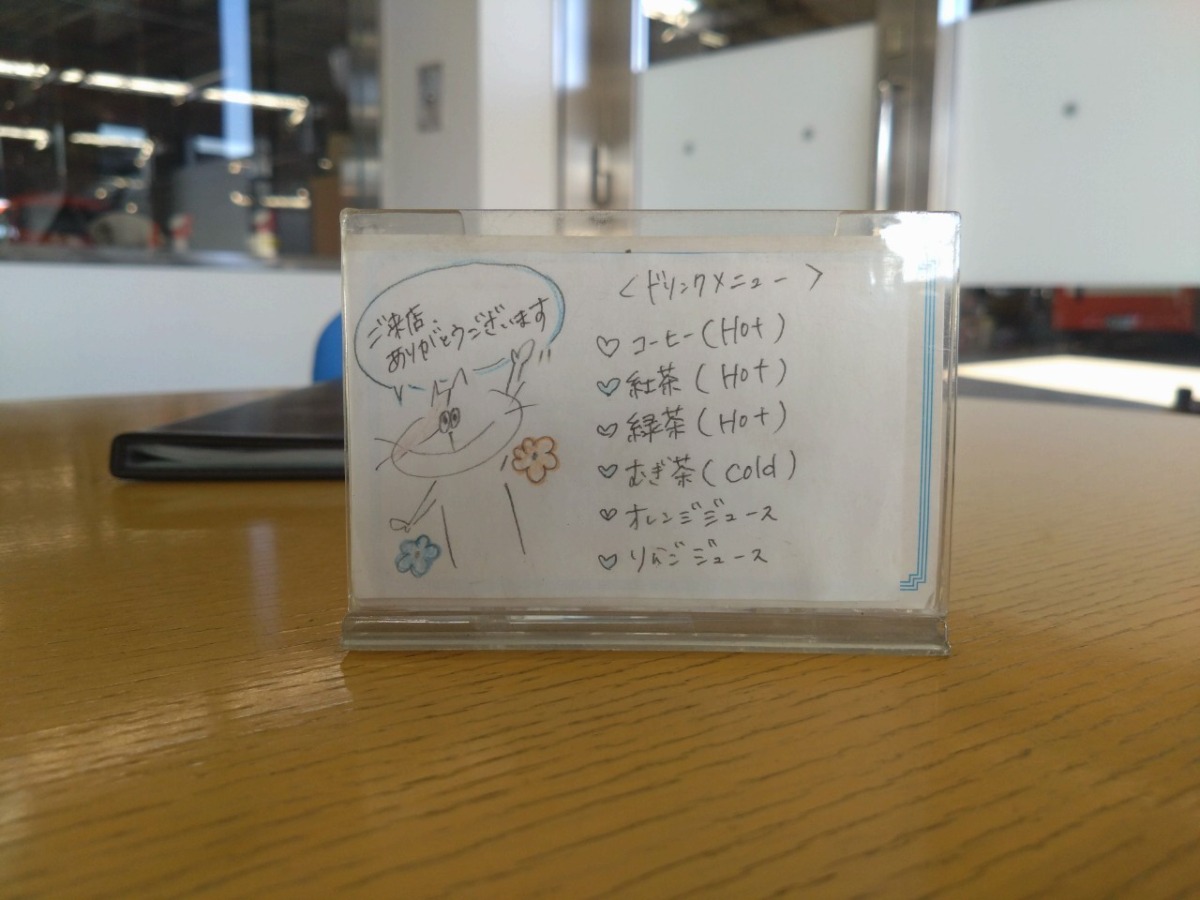 ご来店、
ありがとうございます
<ドリンクメニュー>
♡ コーヒー(Hot)
♡ 紅茶(Hot)
♡ 緑茶(Hot)
♡ むぎ茶(cold)
♡ オレンジジュース
♡ りんごジュース